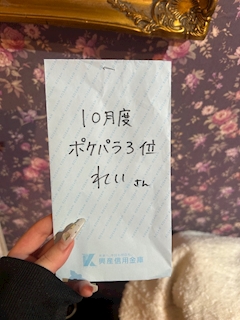 10月度
ポケパラ3位
れい さん
興産信用金庫